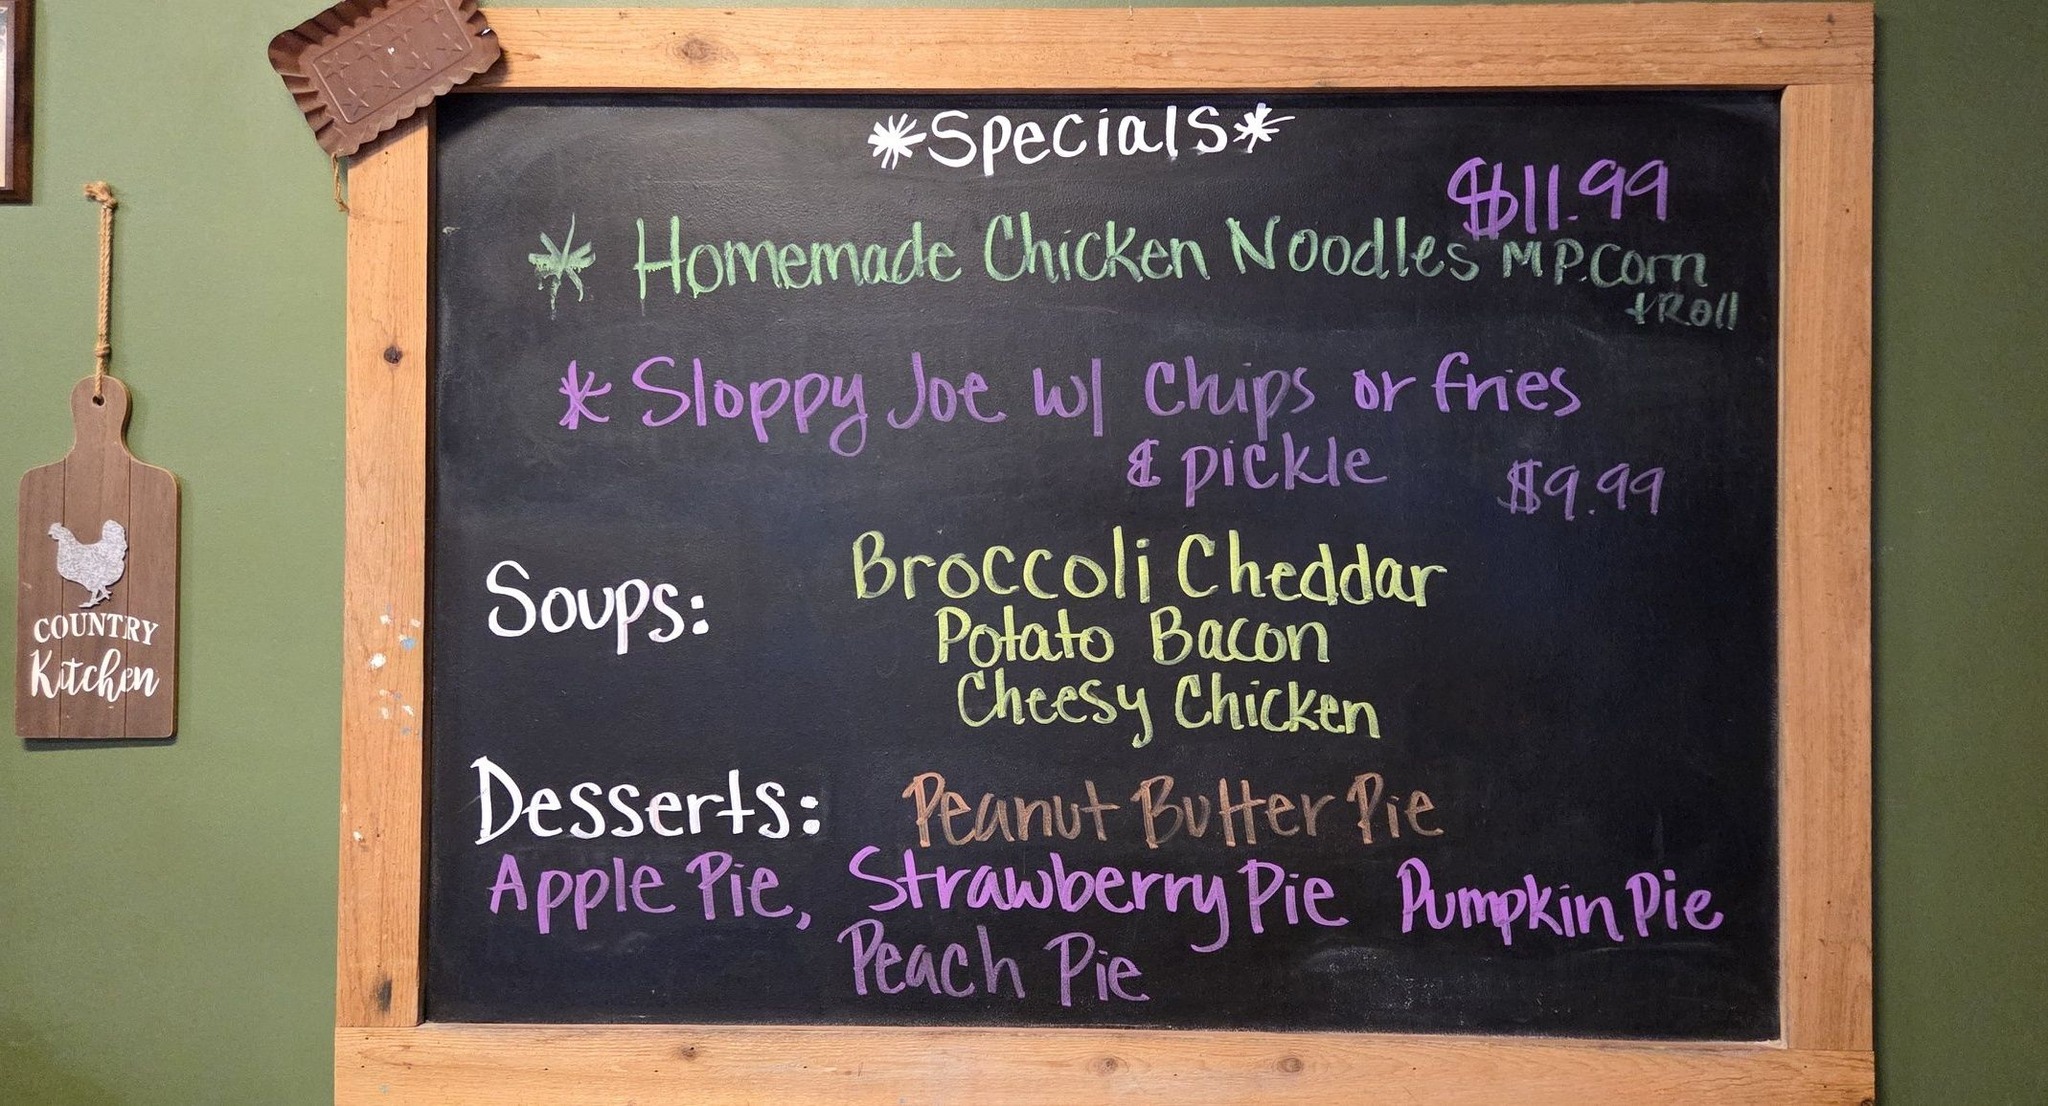 *Specials*
$11.99
* Homemade Chicken Noodles MP. Corn
+ Roll
* Sloppy Joe w/ Chips or fries
& pickle $9.99
Soups: Broccoli Cheddar
Potato Bacon
Cheesy Chicken
Desserts: Peanut Butter Pie
Apple Pie, Strawberry Pie Pumpkin Pie
Peach Pie
COUNTRY
Kitchen